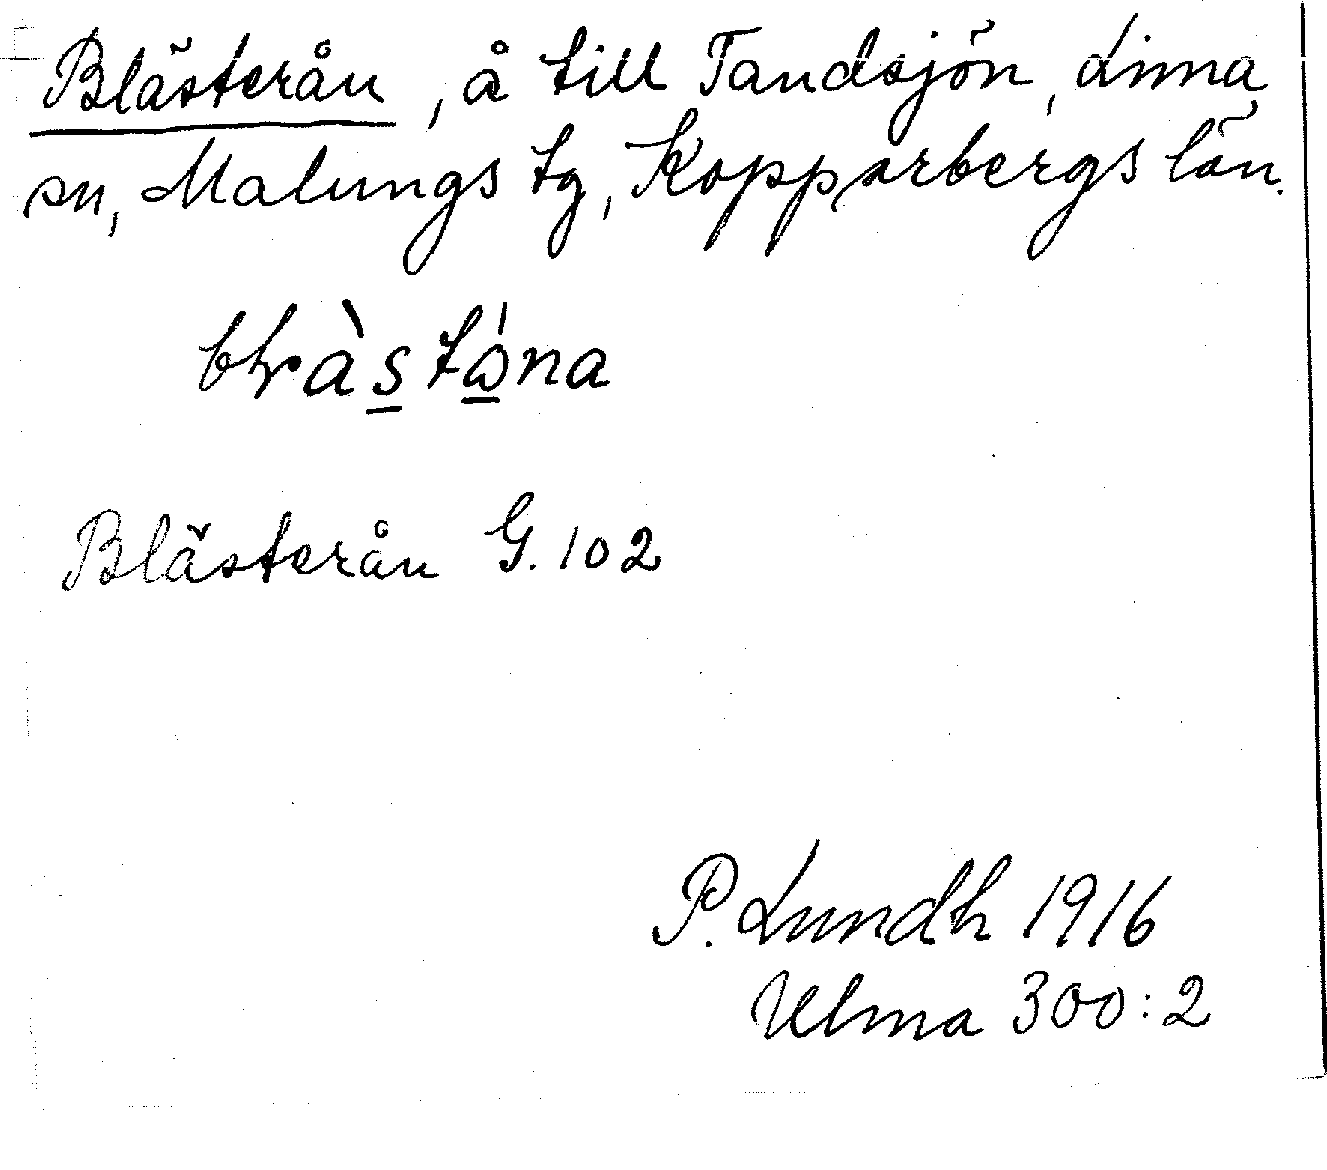 Blästerån, å till Tandsjön, Lima
sn, Malungs tg, Kopparbergs län.
Blästerån G. 102
P. Lundh 1916
Ulma 300:2